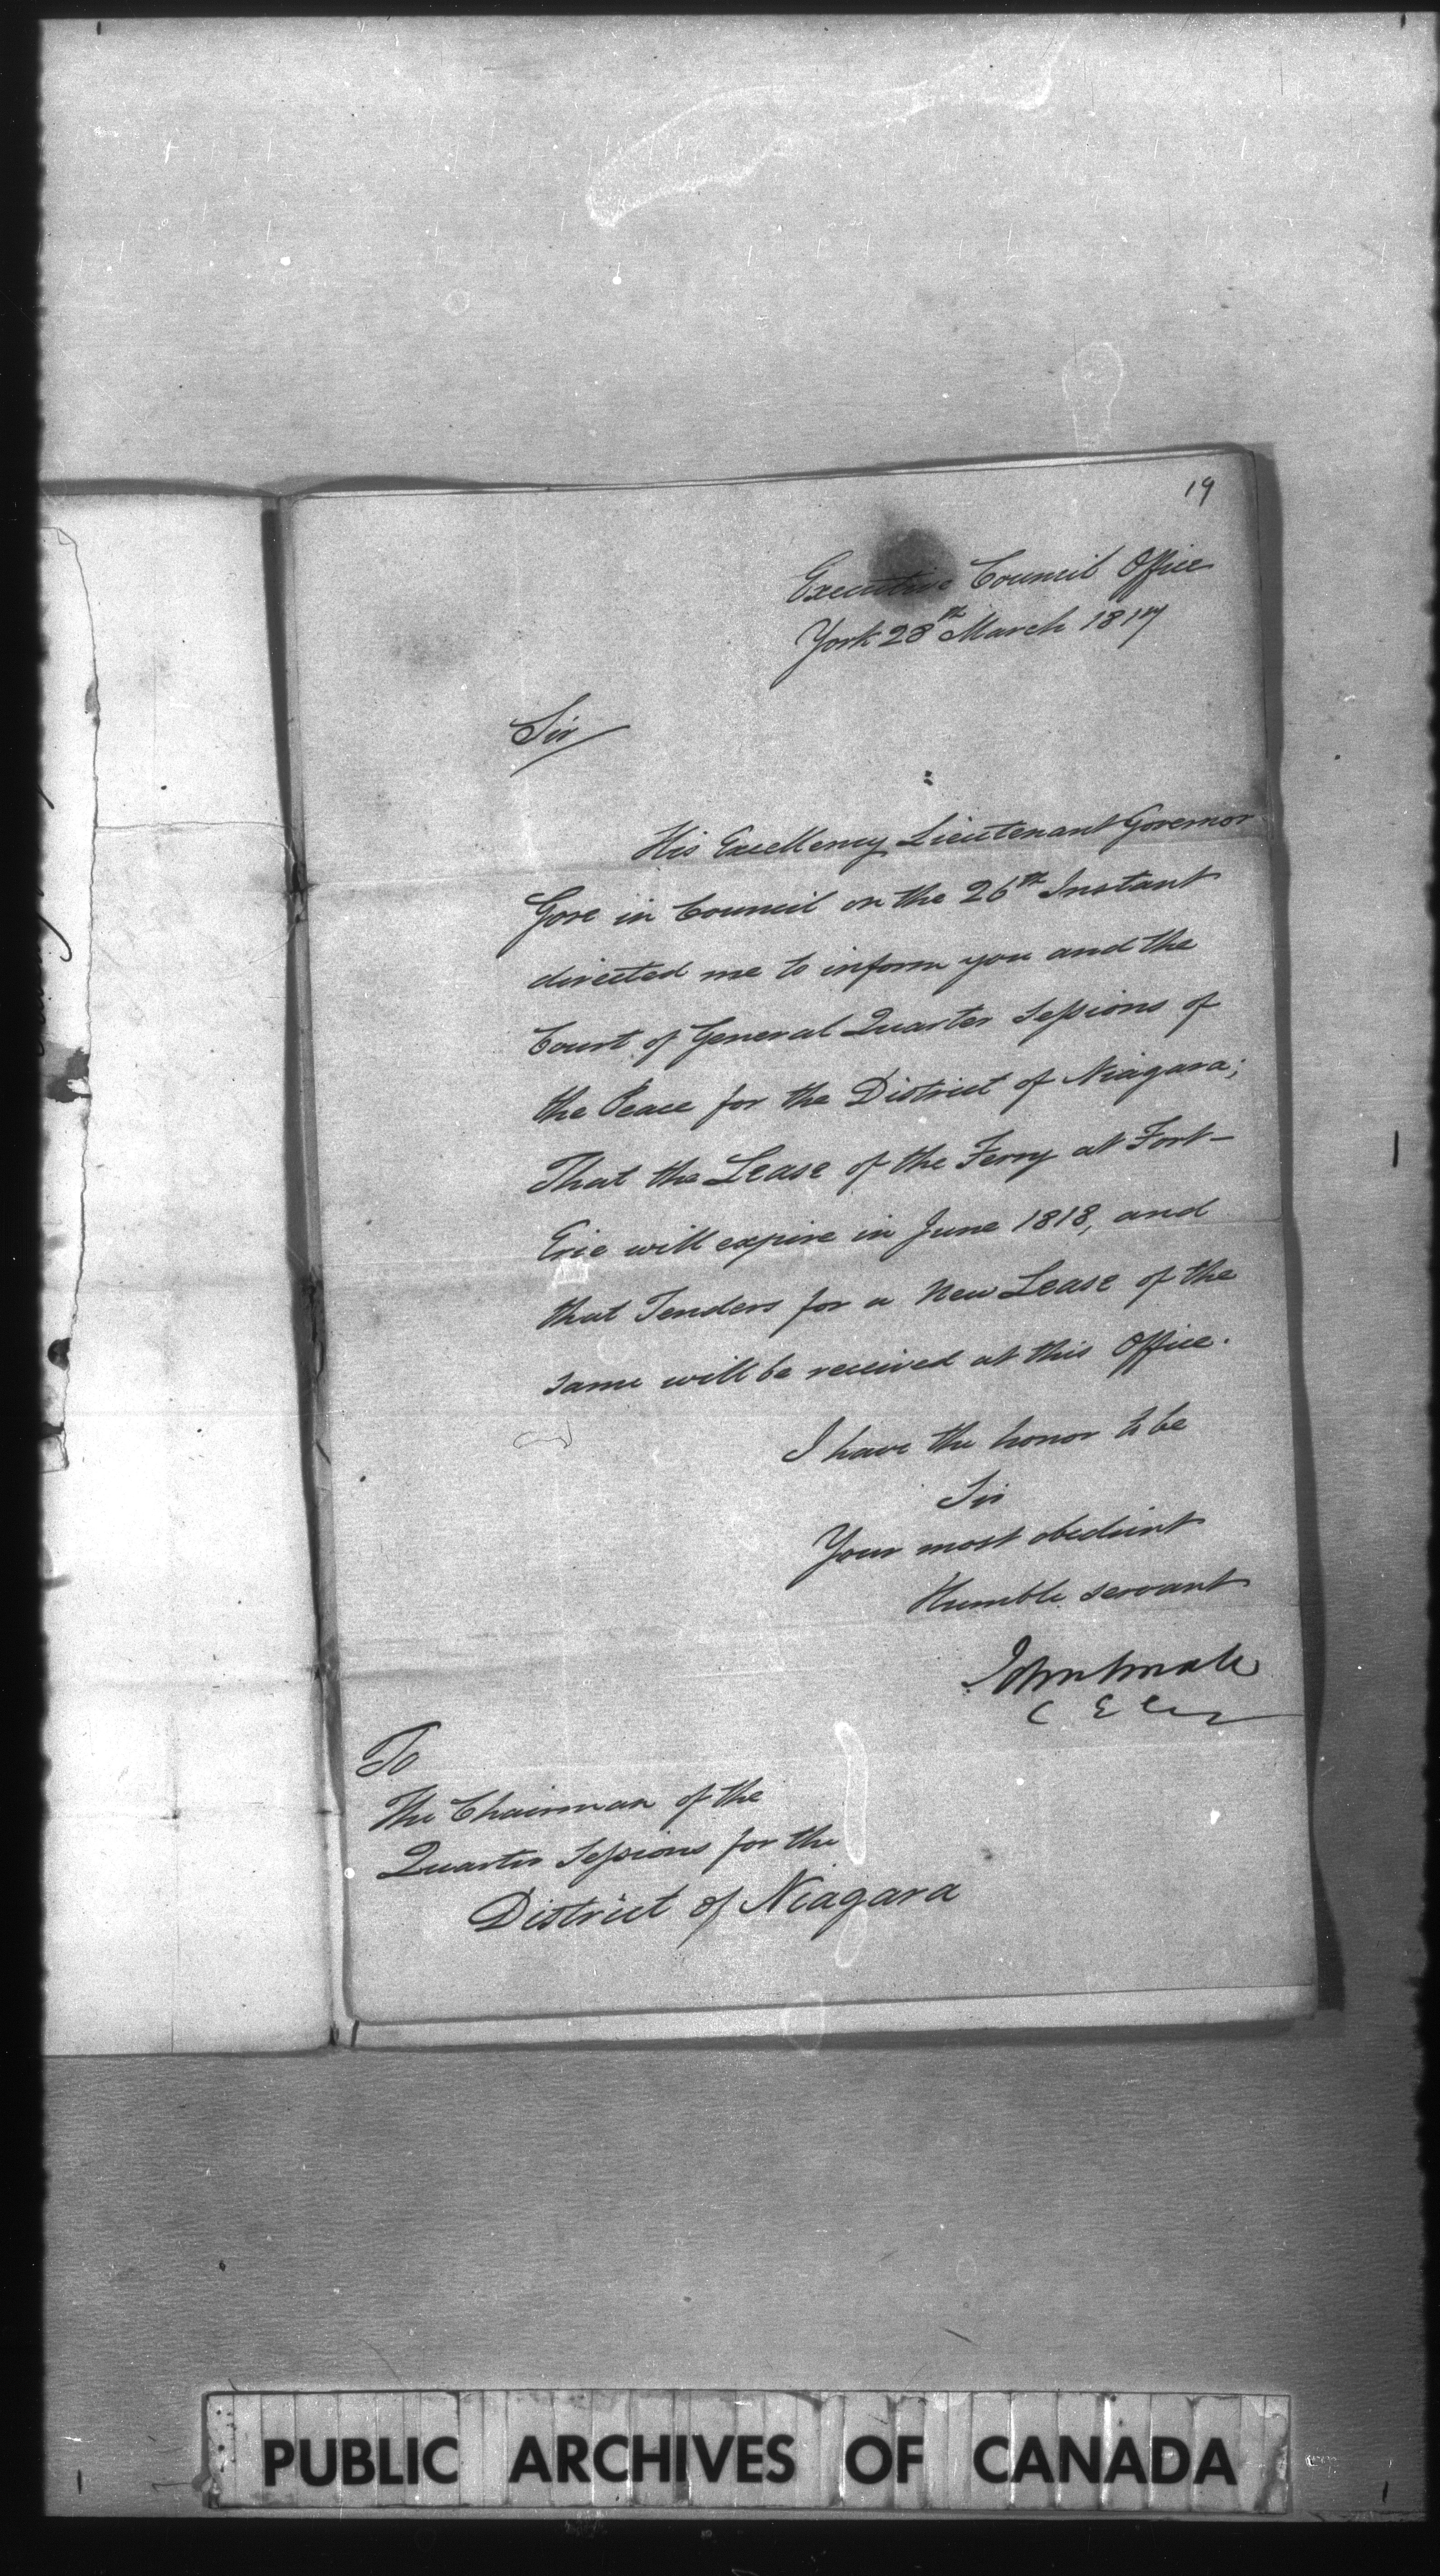 19
Executive Council Office
York 28th March 1817
Sir
His Excellency Lieutenant Governor
Gore in Council on the 26th Instant
directed me to inform you and the
Court of General Quarter Sessions of
the Peace for the District of Niagara;
That the Lease of the Ferry at Fort-
Erie will expire in June 1818, and
that Tenders for a New Lease of the
same will be received at this Office.
I have the honor to be
Sir
Your most obedient
Humble servant
John Small
C E C
To
The Chairman of the
Quarter Sessions for the
District of Niagara
PUBLIC ARCHIVES OF CANADA